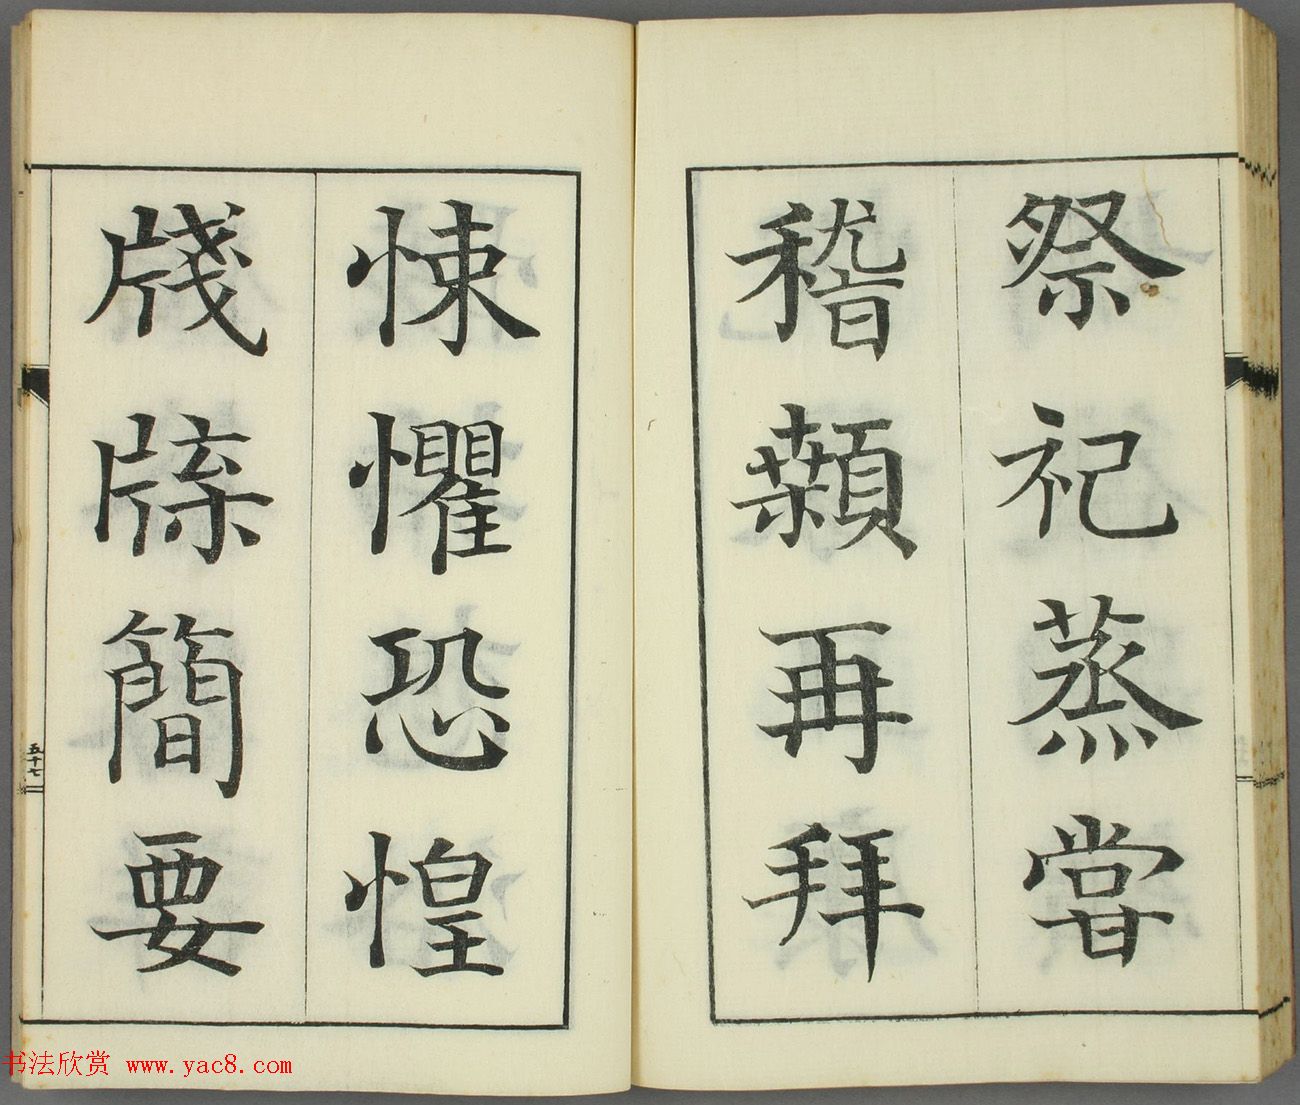 祭祀蒸甞
稽顙再拜
悚懼恐惶
牋牒簡要
五十七
书法欣赏 www.yac8.com